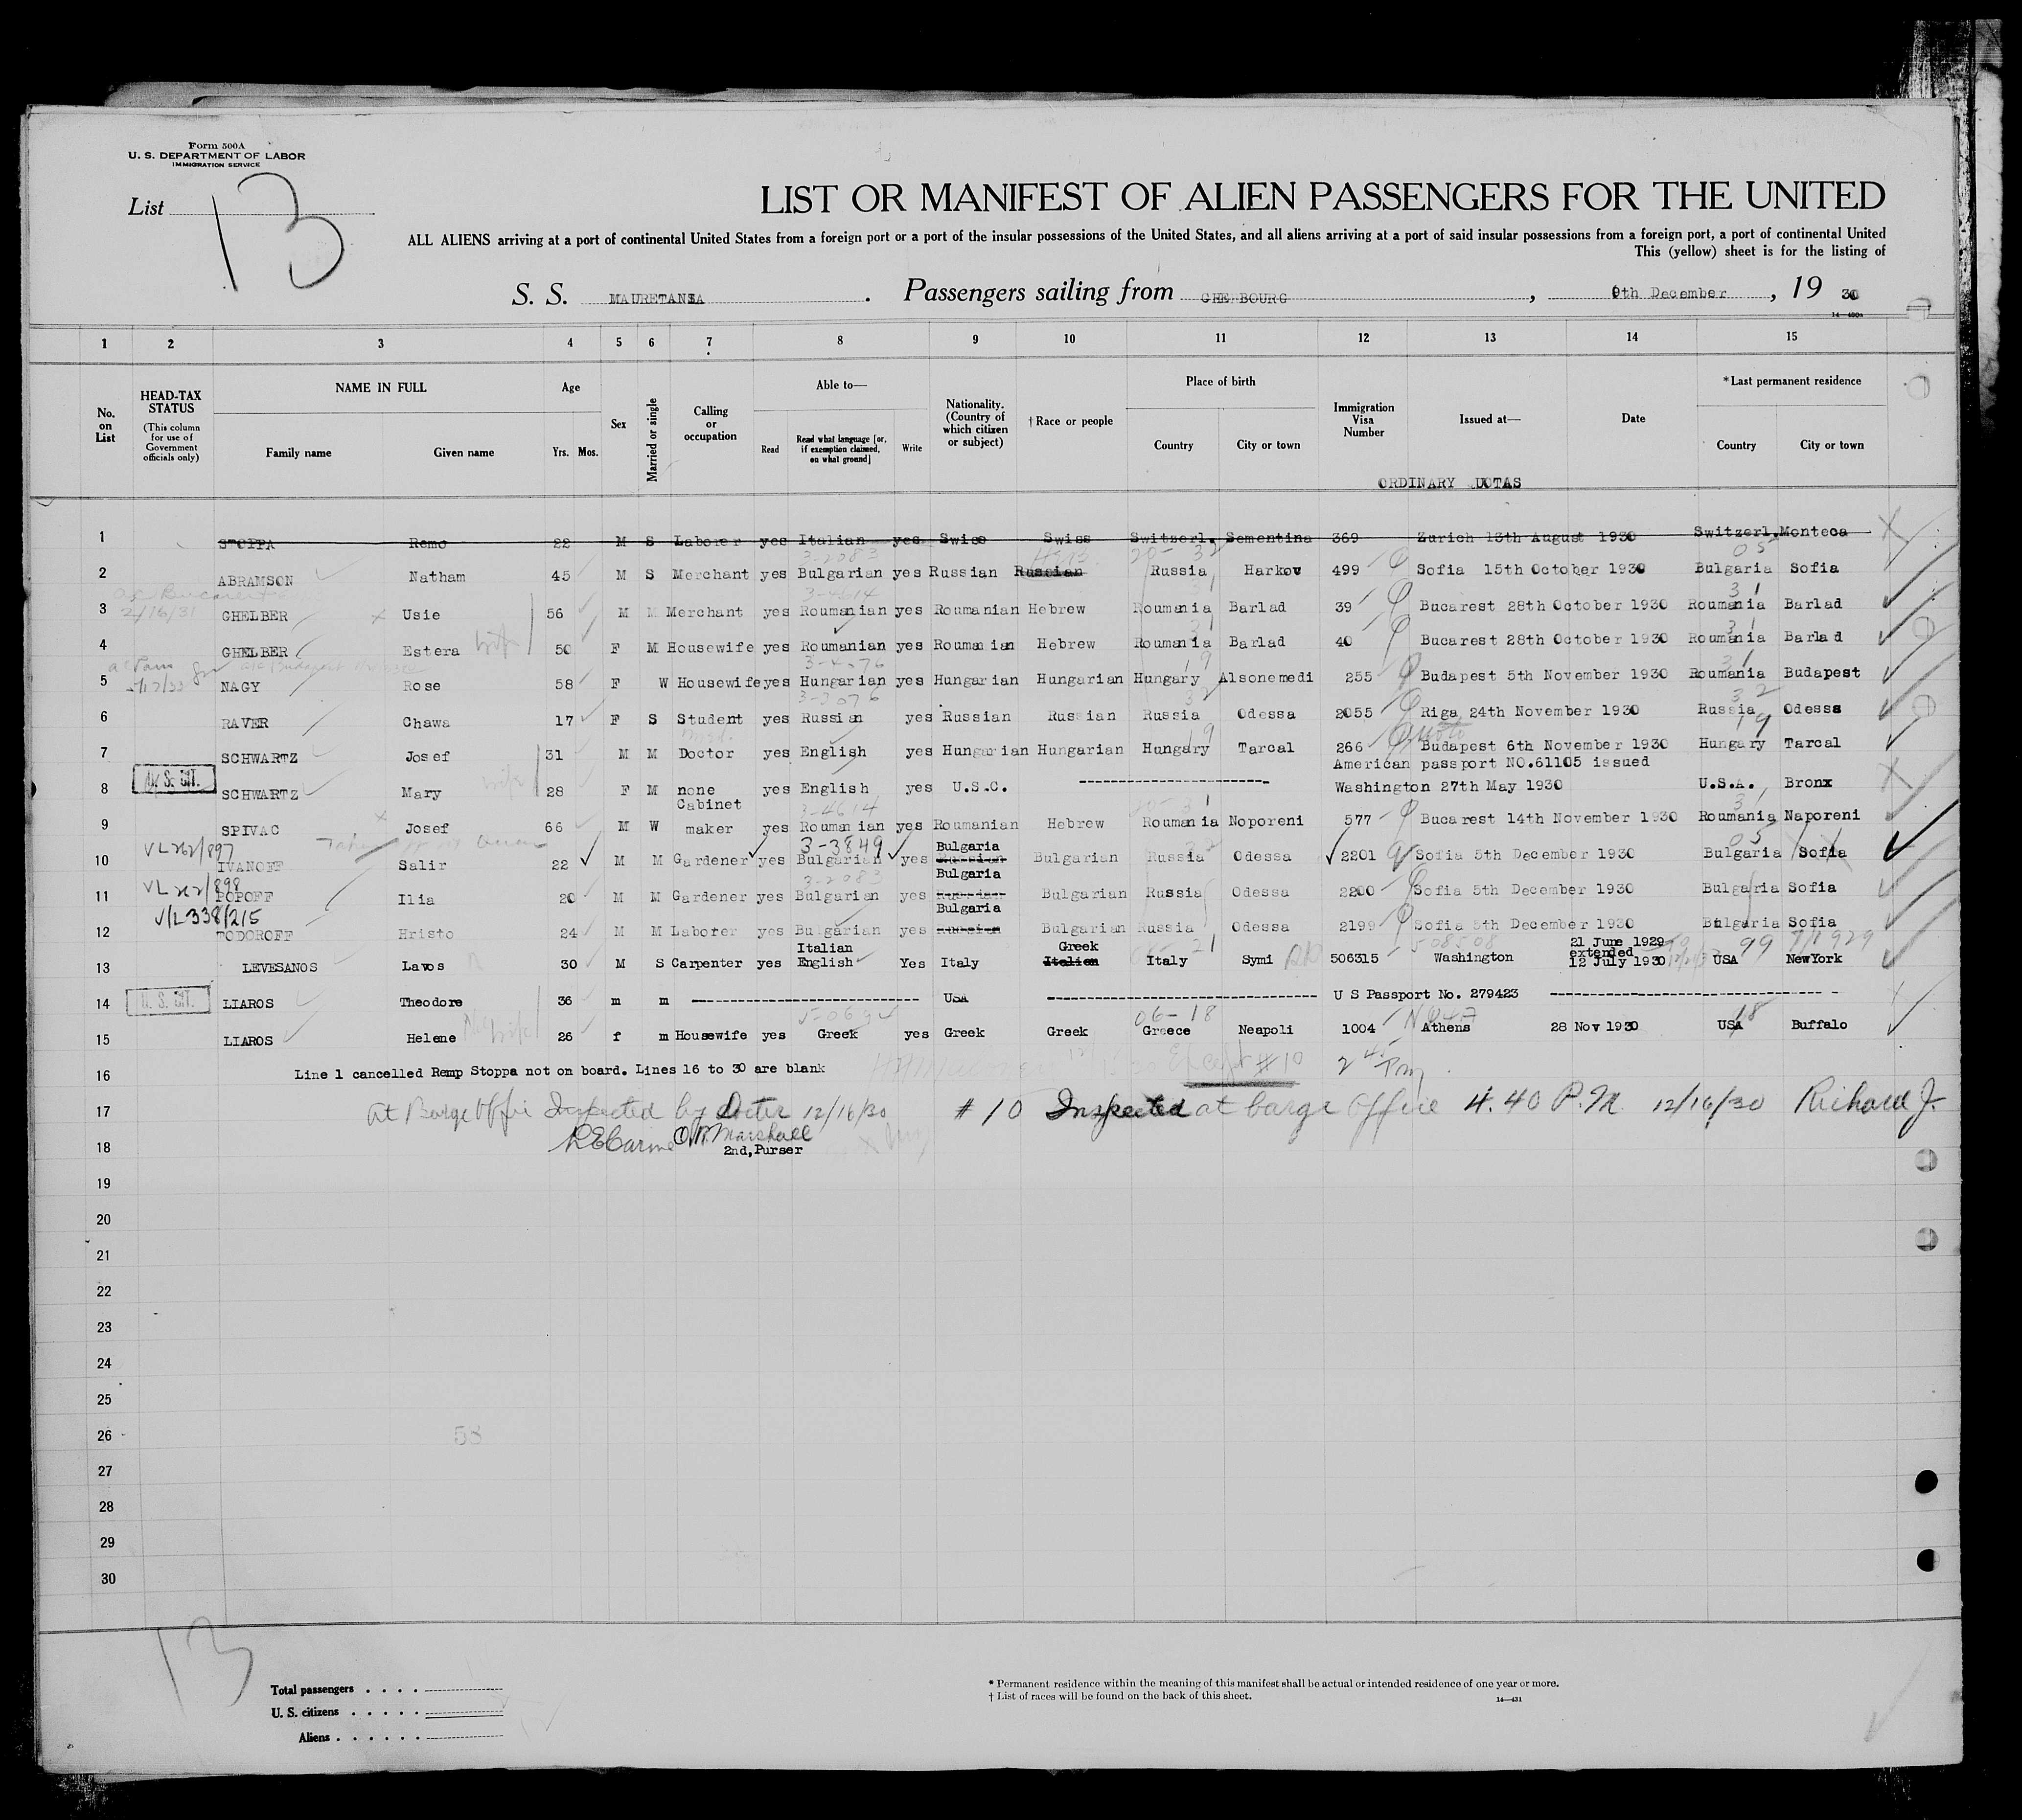 Form 500A
U. S. DEPARTMENT OF LABOR
IMMIGRATION SERVICE
List 13
LIST OR MANIFEST OF ALIEN PASSENGERS FOR THE UNITED
ALL ALIENS arriving at a port of continental United States from a foreign port or a port of the insular possessions of the United States, and all aliens arriving at a port of said insular possessions from a foreign port, a port of continental United
This (yellow) sheet is for the listing of
S. S. MAURETANIA . Passengers sailing from CHERBOURG , 9th December , 19 30
14—480a
1 2 3 4 5 6 7 8 9 10 11 12 13 14 15
No. on List
HEAD-TAX STATUS (This column for use of Government officials only)
NAME IN FULL Family name Given name
Age Yrs. Mos.
Sex
Married or single
Calling or occupation
Able to— Read Read what language [or, if exemption claimed, on what ground] Write
Nationality. (Country of which citizen or subject)
† Race or people
Place of birth Country City or town
Immigration Visa Number
Issued at—
Date
* Last permanent residence Country City or town
ORDINARY UOTAS
1 STOPPA Remo 22 M S Laborer yes Italian yes Swiss Swiss Switzerl. Sementina 369 Zurich 13th August 1930 Switzerl. Monteca
3-2083 32 05
2 ABRAMSON Natham 45 M S Merchant yes Bulgarian yes Russian Russian Russia Harkov 499 Sofia 15th October 1930 Bulgaria Sofia
2/16/31 3-4614 31
3 GHELBER Usie 56 M M Merchant yes Roumanian yes Roumanian Hebrew Roumania Barlad 39 Bucarest 28th October 1930 Roumania Barlad
31 31
4 GHELBER Estera wife 50 F M Housewife yes Roumanian yes Roumanian Hebrew Roumania Barlad 40 Bucarest 28th October 1930 Roumania Barlad
19 31
5 NAGY Rose 58 F W Housewife yes Hungarian yes Hungarian Hungarian Hungary Alsonemedi 255 Budapest 5th November 1930 Roumania Budapest
3-3076 32 32
6 RAVER Chawa 17 F S Student yes Russian yes Russian Russian Russia Odessa 2055 Riga 24th November 1930 Russia Odessa
19 19
7 SCHWARTZ Josef 31 M M Doctor yes English yes Hungarian Hungarian Hungary Tarcal 266 Budapest 6th November 1930 Hungary Tarcal
American passport NO.61105 issued
U. S. CIT.
8 SCHWARTZ Mary wife 28 F M none yes English yes U.S.C. Washington 27th May 1930 U.S.A. Bronx
Cabinet
3-4614 31 31
9 SPIVAC Josef 66 M W maker yes Roumanian yes Roumanian Hebrew Roumania Noporeni 577 Bucarest 14th November 1930 Roumania Naporeni
VL262/897 3-3849 Bulgaria 05
10 IVANOFF Salir 22 M M Gardener yes Bulgarian yes Russian Bulgarian Russia Odessa 2201 Sofia 5th December 1930 Bulgaria Sofia
VL262/898 3-2083 Bulgaria
11 POPOFF Ilia 20 M M Gardener yes Bulgarian yes Russian Bulgarian Russia Odessa 2200 Sofia 5th December 1930 Bulgaria Sofia
V/L338/215 Bulgaria
12 TODOROFF Hristo 24 M M Laborer yes Bulgarian yes Russian Bulgarian Russia Odessa 2199 Sofia 5th December 1930 Bulgaria Sofia
Italian Greek 21 508508 21 June 1929 extended 99 7/1 929
13 LEVESANOS Lavos 30 M S Carpenter yes English Yes Italy Italian Italy Symi 506315 Washington 12 July 1930 USA NewYork
U. S. CIT.
14 LIAROS Theodore 36 m m USA U S Passport No. 279423
06-18 18
15 LIAROS Helene wife 26 f m Housewife yes Greek yes Greek Greek Greece Neapoli 1004 Athens 28 Nov 1930 USA Buffalo
16 Line 1 cancelled Remp Stoppa not on board. Lines 16 to 30 are blank Except #10 2 45 Pm
17 At Barge Office Inspected by Doctor 12/16/30 #10 Inspected at barge office 4.40 P.M. 12/16/30 Richard J.
Marshall
18 2nd,Purser
19
20
21
22
23
24
25
26 58
27
28
29
30
13
Total passengers
U. S. citizens
Aliens
* Permanent residence within the meaning of this manifest shall be actual or intended residence of one year or more.
† List of races will be found on the back of this sheet.
14—431